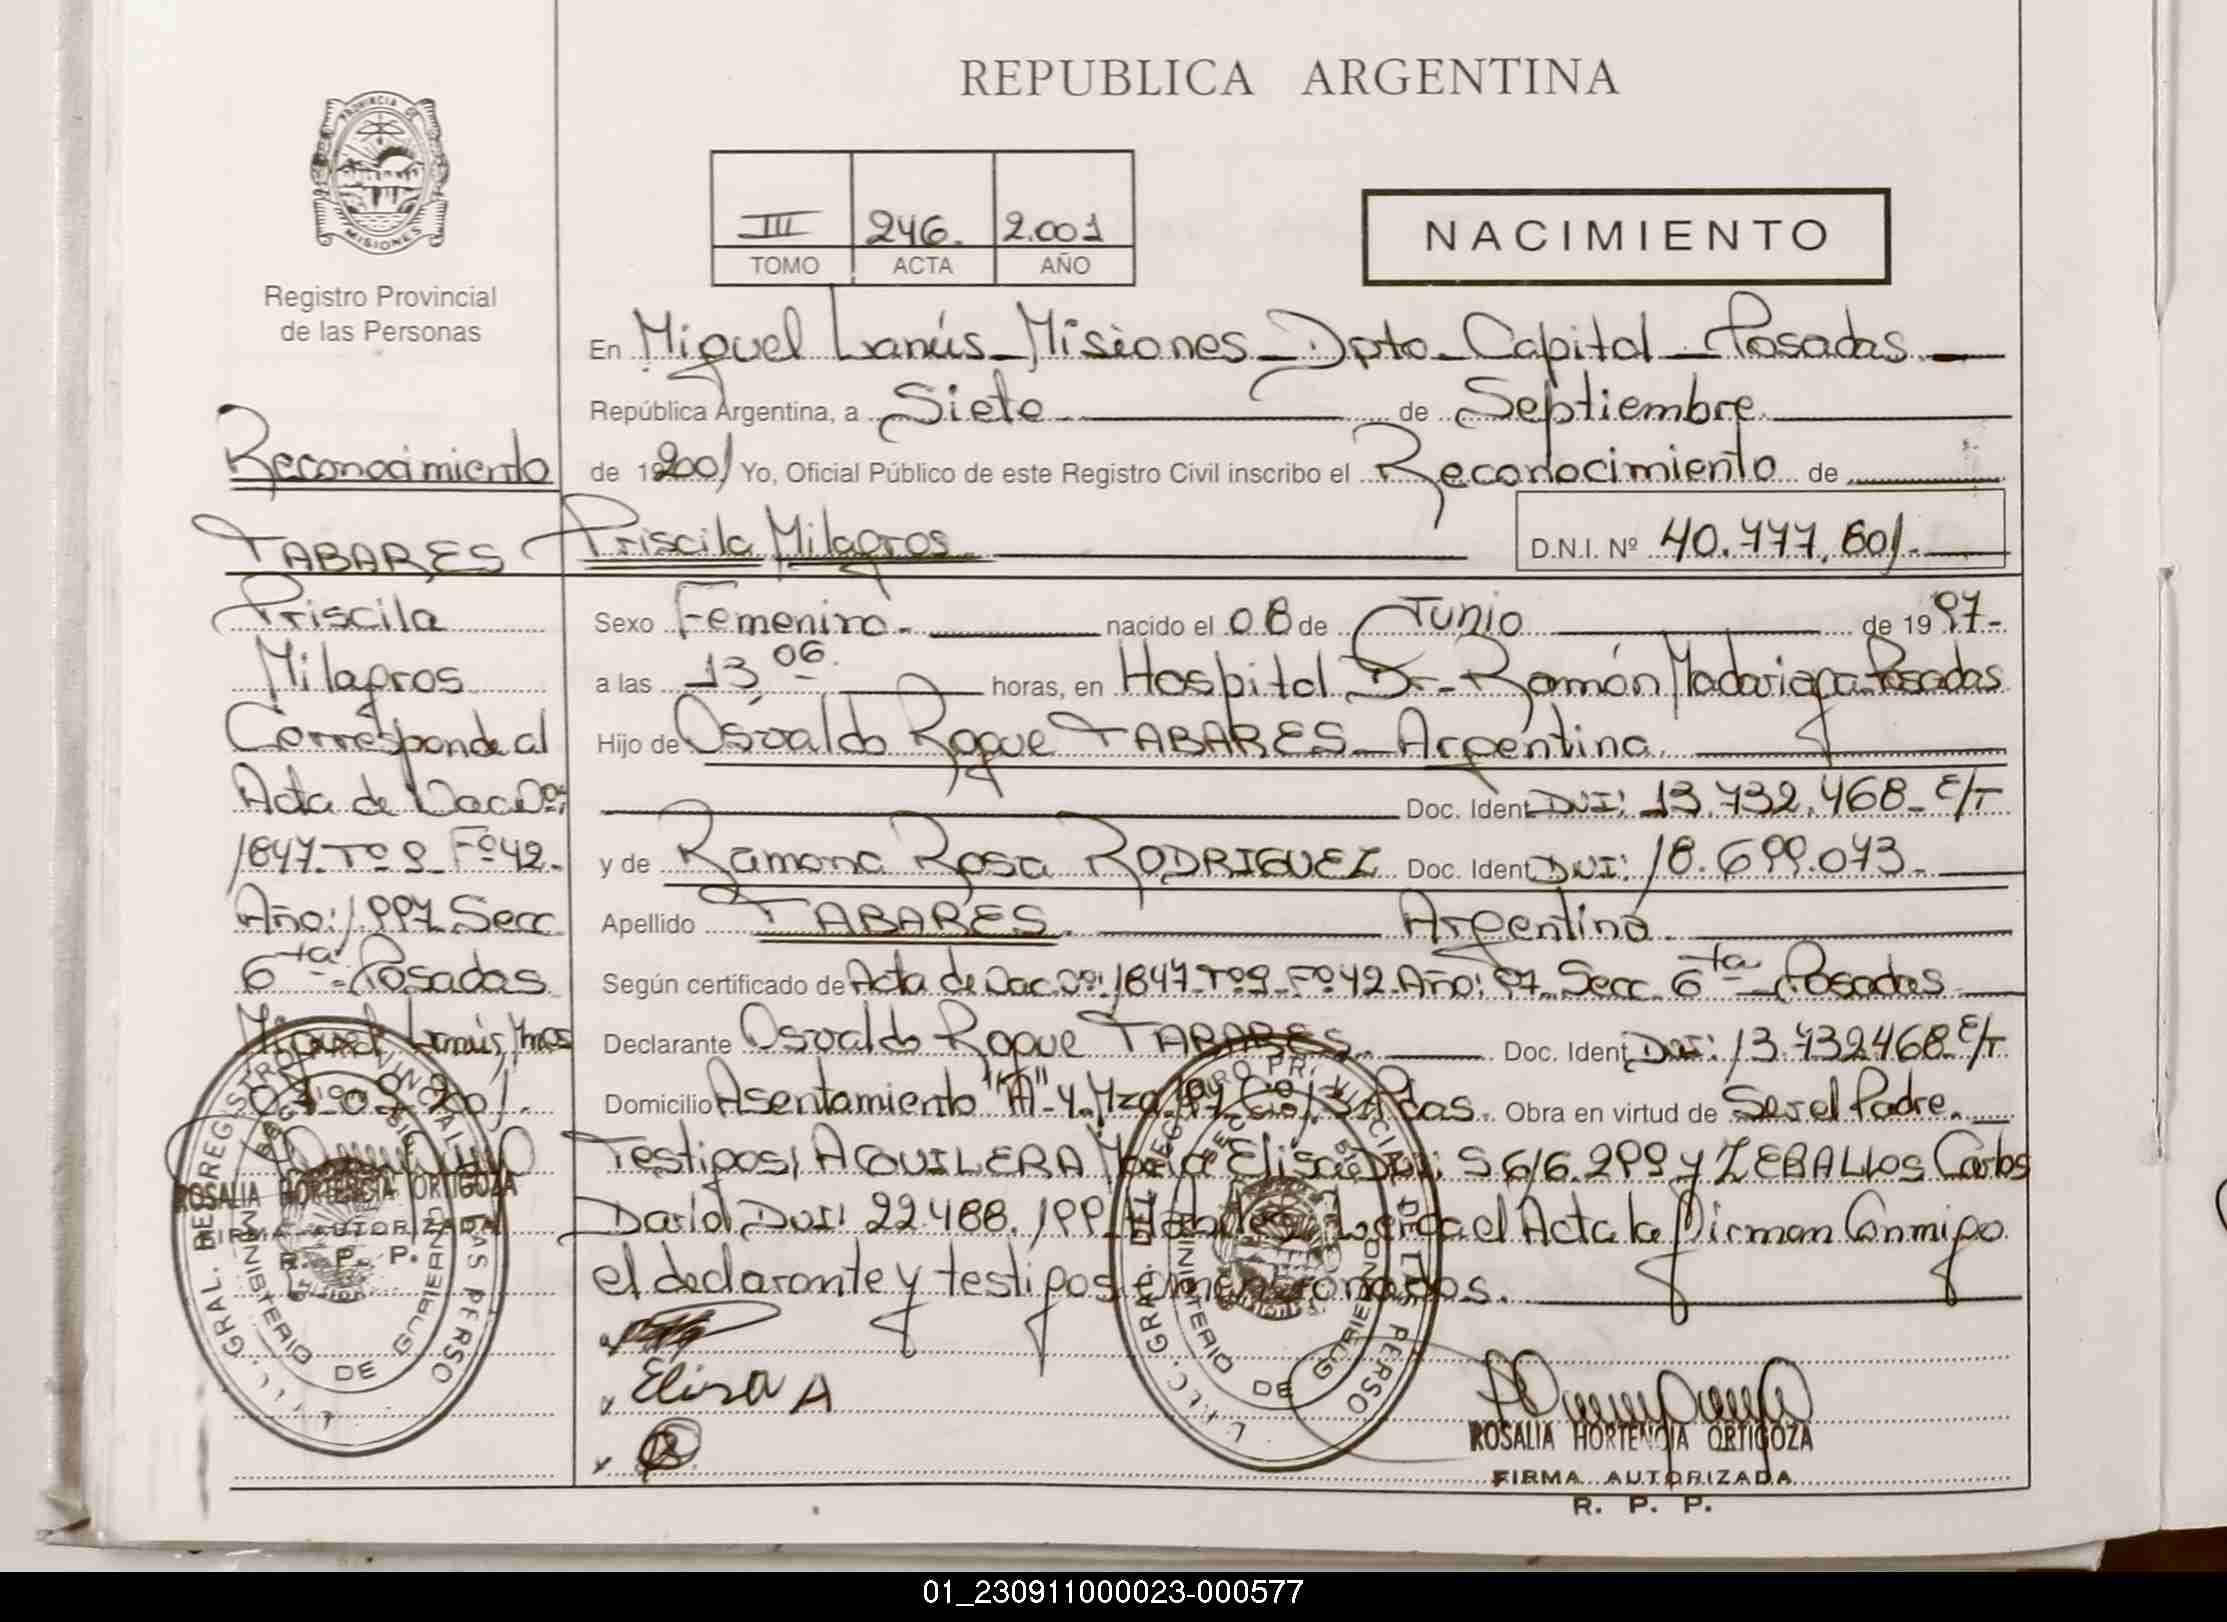 REPUBLICA ARGENTINA
PROVINCIA DE
MISIONES
Registro Provincial
de las Personas
III 246. 2.001
TOMO ACTA AÑO
NACIMIENTO
En Miguel Lanús - Misiones - Dpto - Capital - Posadas
República Argentina, a Siete de Septiembre
de 19 2001 Yo, Oficial Público de este Registro Civil inscribo el Reconocimiento de
Priscila Milagros D.N.I. Nº 40.777.601.
Sexo Femenino. nacido el 08 de Junio de 19 97-
a las 13 06. horas, en Hospital Dr. Ramón Madariaga Posadas
Hijo de Osvaldo Roque TABARES - Argentino.
Doc. Ident DNI: 13.732.468- E/T
y de Ramona Rosa RODRIGUEZ Doc. Ident DNI: 18.699.073.
Apellido TABARES. Argentina.
Según certificado de Acta de Nac. Nº: 1847 Tº 9 Fº 42 Año: 97 Secc 6ta Posadas
Declarante Osvaldo Roque TABARES Doc. Ident DNI: 13.732468 E/T
Domicilio Asentamiento "A" 4. Mza. Pdas. Obra en virtud de Ser el Padre.
Testigos, AGUILERA María Elisa DNI: 5.616.299 y ZEBALLOS Carlos
Darío DNI: 22.488.199 Leída el Acta la firman Conmigo
el declarante y testigos
Elisa A
ROSALIA HORTENCIA ORTIGOZA
FIRMA AUTORIZADA
R. P. P.
Reconocimiento
TABARES
Priscila
Milagros
Corresponde al
Acta de Nac Nº:
1847 Tº 9 Fº 42.
Año: 1997 Secc
6ta Posadas
Miguel Lanús, Mnes
07-09-2001.
ROSALIA HORTENCIA ORTIGOZA
FIRMA AUTORIZADA
R. P. P.
01_230911000023-000577